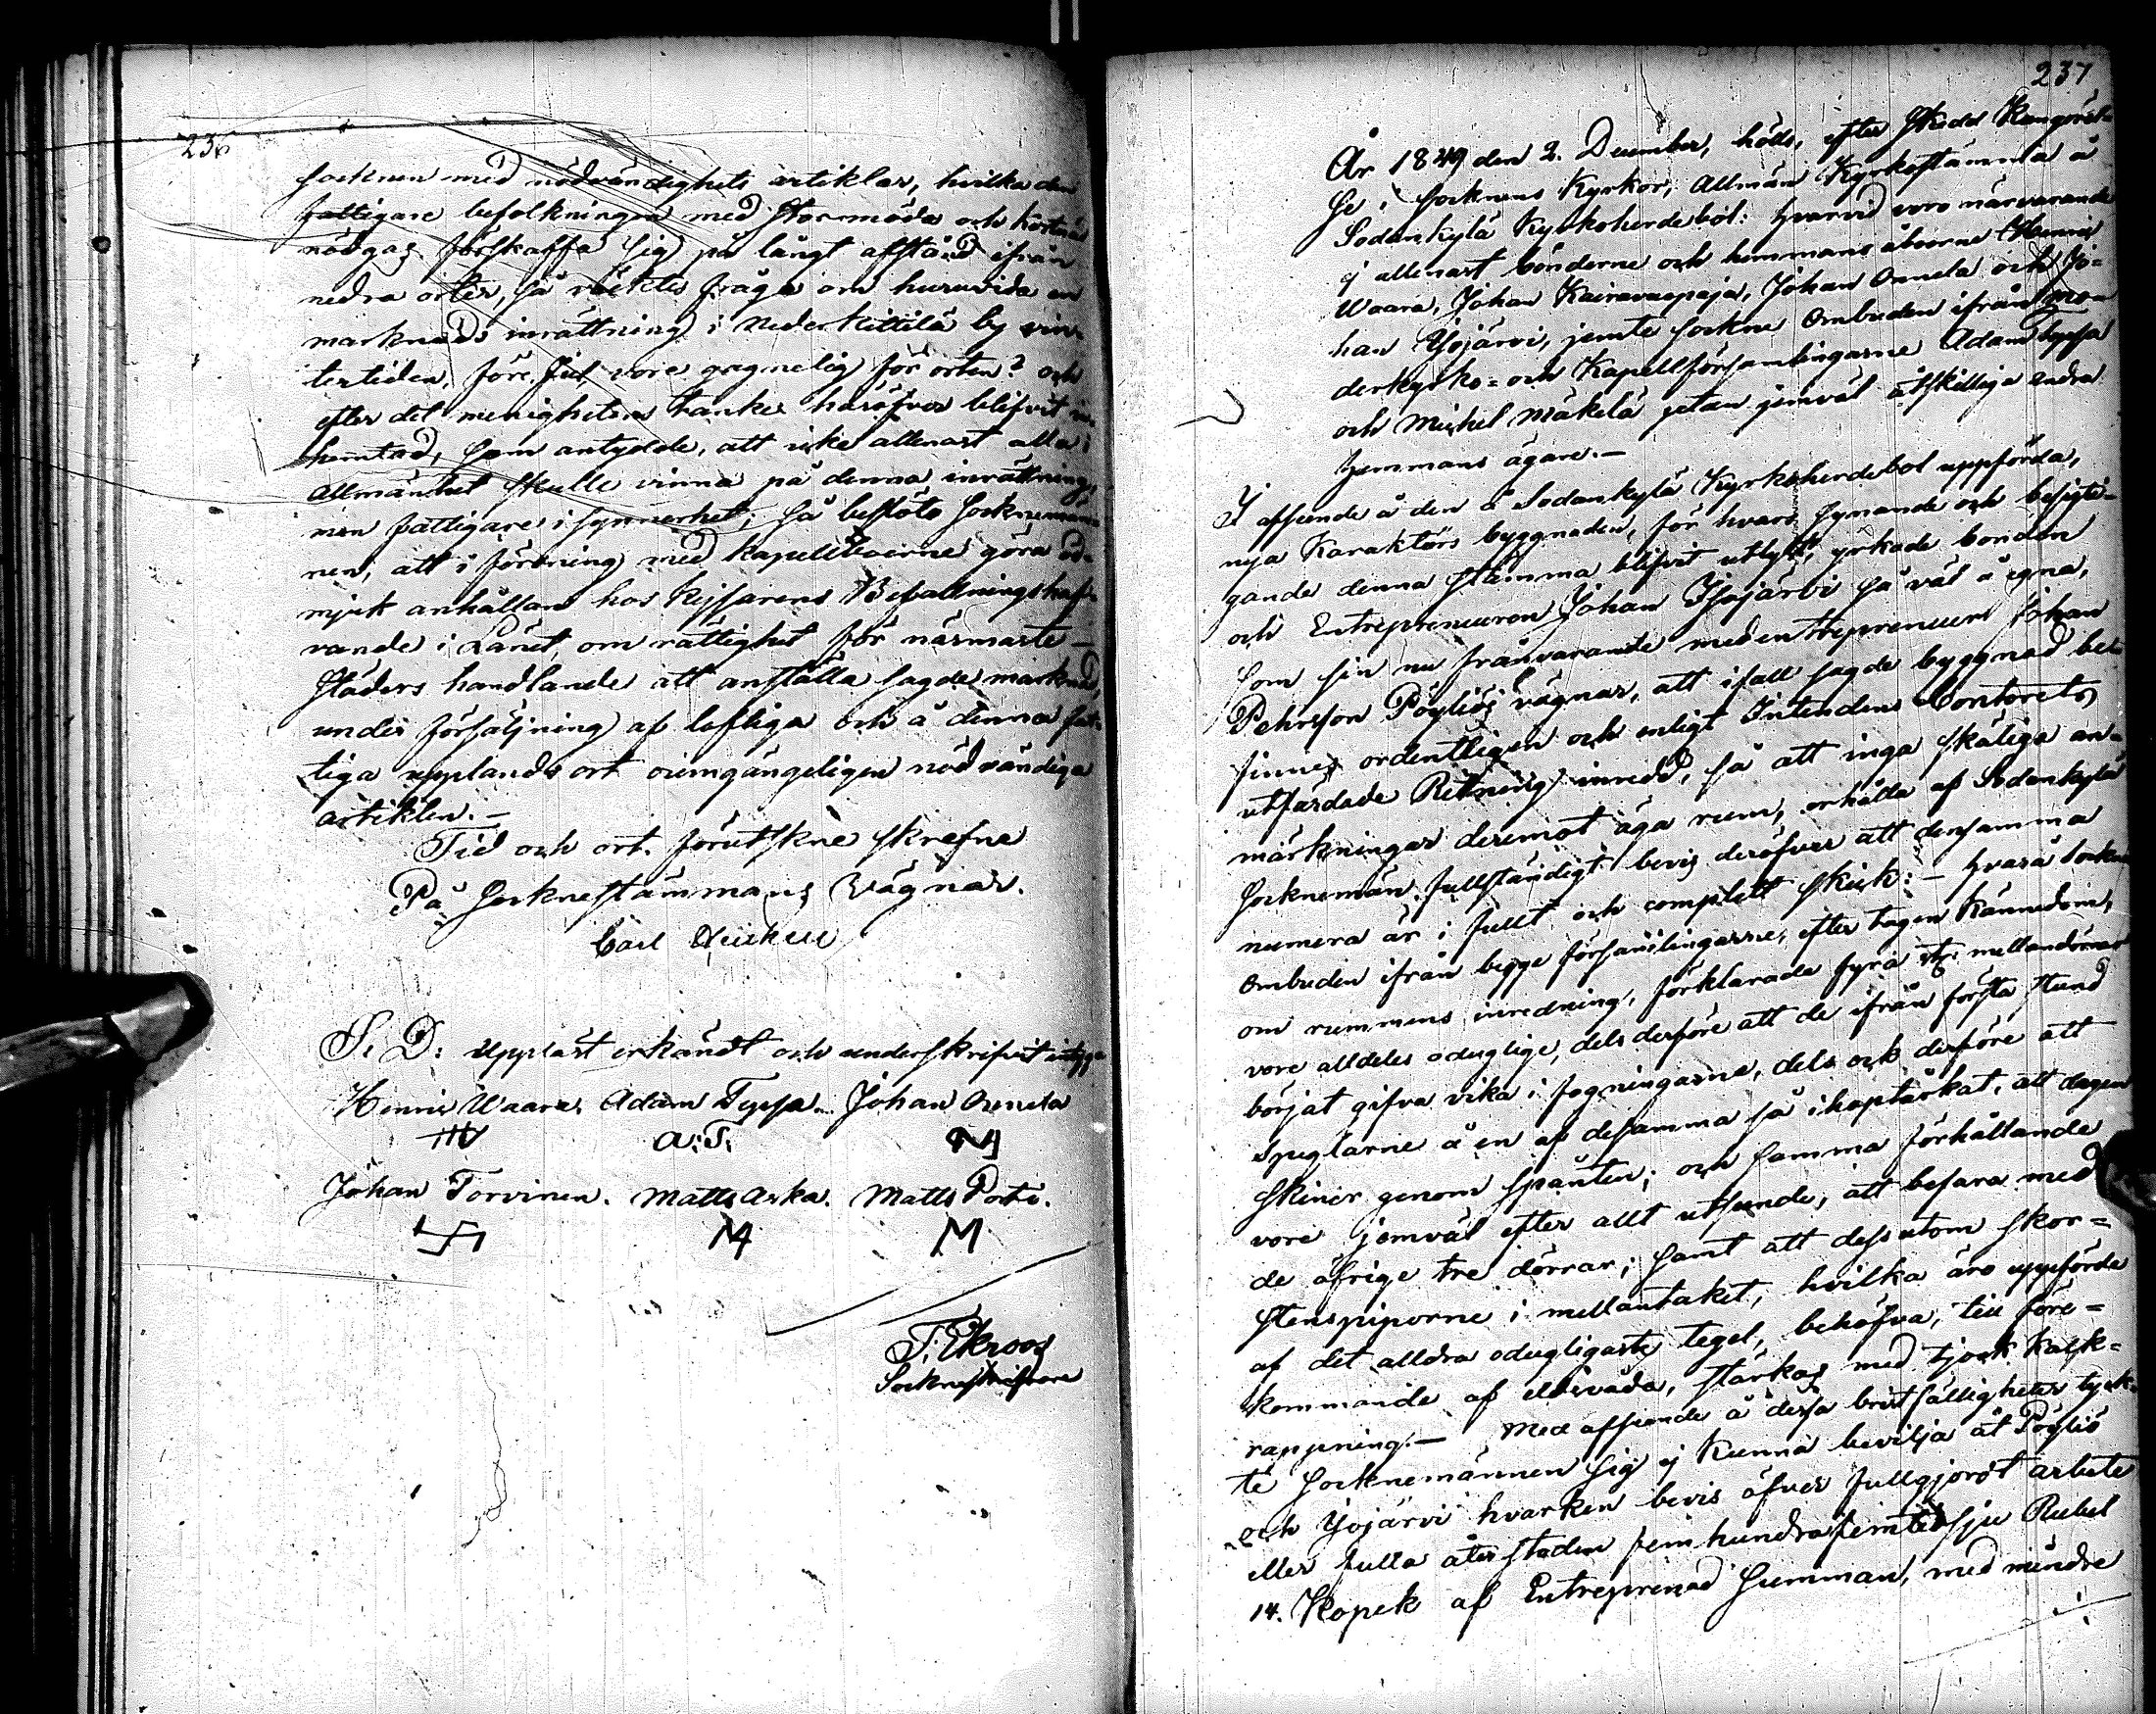 236
socknen med nödvändighets artiklar, hvilka den
fattigare befolkningen med stor möda och kostnad
nödgas förskaffa sig på långt afstånd ifrån
nedra orter, så väcktes fråga om huruvida en
marknads inrättning i Nederkittilä by vin-
tertiden, före Jul, vore gagnelig för orten? och
efter det menighetens tankar häröfver blifvit in-
hemtad, som antydde, att icke allenast alla i
Allmänhet skulle vinna på denna inrättning,
men fattigare i synnerhet; så beslöto Socknemän-
nen, att i förening med kapellboerne göra öd-
mjuk anhållan hos Kejsarens Befallningshaf-
vande i Länet, om rättighet för närmaste
städers handlande att anställa sagde marknad,
under försäljning af lofliga och å denna fat-
tiga upplands ort oumgängeligen nödvändiga
artiklar.—
Tid och ort förutskrefne
På Socknestämmans Vägnar.
Carl
S. D. Uppläst erkändt och underskrifvit intyga
Henric Waara. Adam Typpa. Johan Onnela
A: T:
Johan Torvinen. Matts Aska. Matts Posti.
M
T. Ekroos
Socknesskrifvare
237
År 1849 den 2. December, hölls, efter skedd Kungörel-
se i socknens Kyrkor, Allmän Kyrkostämma å
Sodankylä Kyrkoherdebol: hvarvid voro närvarande
ej allenast bönderne och hemmans åboerne Henric
Waara, Johan Kairavuopaja, Johan Onnela och Jo-
han Yojärvi, jemte sockne Ombuden ifrån mo-
derkyrko- och Kapellförsamlingarne Adam Typpa
och Michel Mäkelä jemväl åtskillige andra
hemmans ägare.—
I afseende å den å Sodankylä Kyrkoherdebol uppförda,
nya Karaktärs byggnaden, för hvars synande och besigti-
gande denna stämma blifvit utlyst, yrkade bonden
och Entrepreneuren Johan Yojärvi så väl å egna,
som sin nu frånvarande medentrepreneurs Johan
Pehrsson Pöyliös vägnar, att ifall sagde byggnad be-
finnes ordentligen och enligt Intendens Contorets
utfärdade Ritning inredd, så att inga skälige an-
märkningar deremot äga rum, erhålla af Sodankylä
Socknemän fullständigt bevis deröfver att densamma
numera är i fullt och complett skick:— hvarå Sockne
Ombuden ifrån begge församlingarne, efter tagen kännedom,
om rummens inredning, förklarade fyra st: mellandörrar
vore alldeles oduglige, dels derföre att de ifrån första stund
börjat gifva vika i fogningarna, dels ock derföre att
speglarne å en af desamma så ihoptorkat, att dagen
skiner genom spånten; och samma förhållande
vore jemväl efter allt utseende, att befara med
de öfrige tre dörrar; samt att dessutom skor-
stenspiporne i mellantaket, hvilka äro uppförde
af det alldra odugligaste tegel, behöfva, till före-
kommande af eldsvåda, stärkas med tjock kalk-
rappning.— Med afseende å dessa bristfälligheter tyck-
te Socknemännen sig ej kunna bevilja åt Pöyliö
och Yojärvi hvarken bevis öfver fullgjordt arbete
eller fulla återstoden femhundrafemtiosju Rubel
14. Kopek af Entreprenad Summan, med mindre